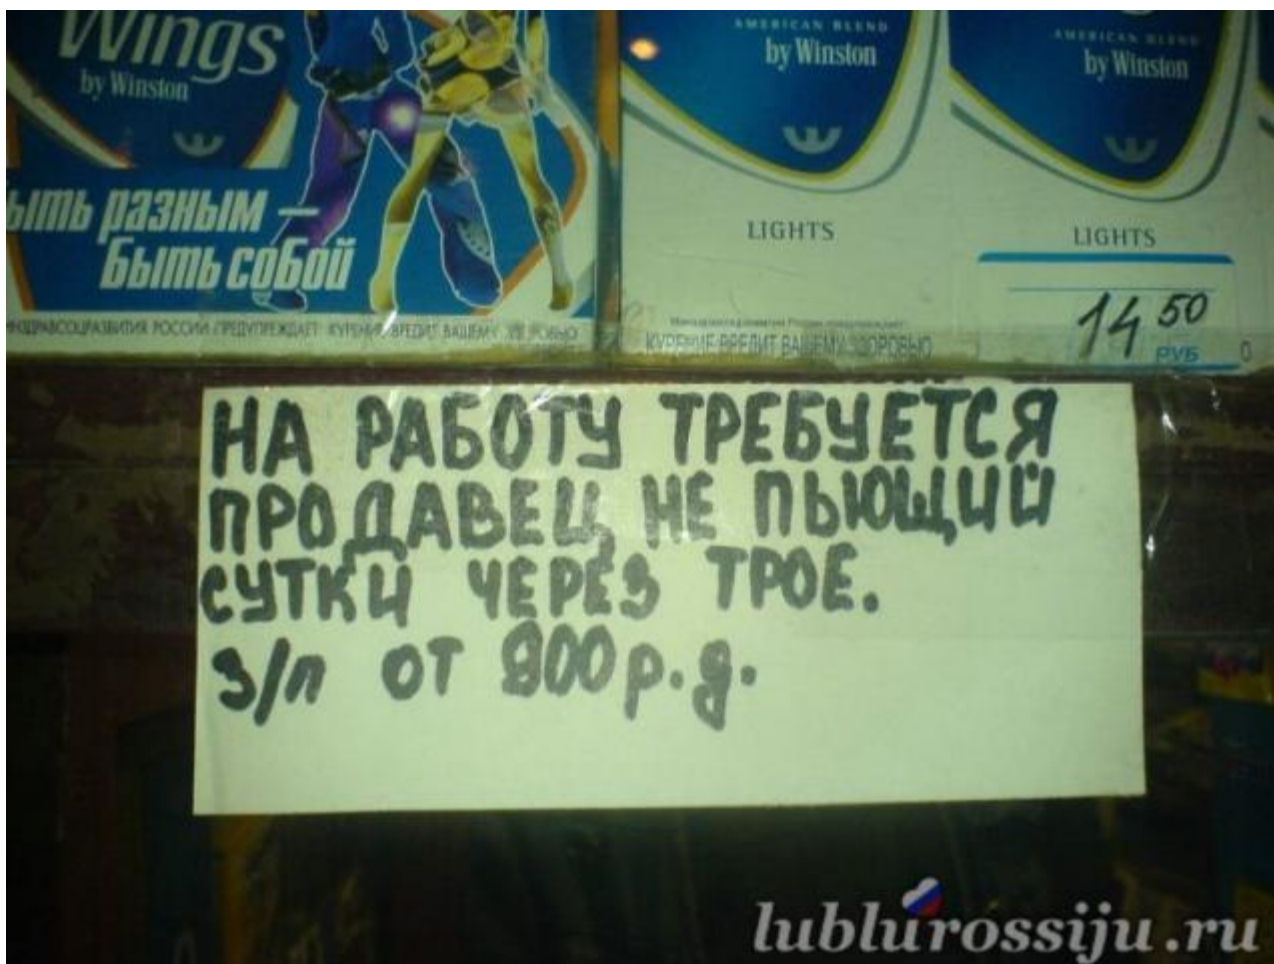 Wings
by Winston
быть разным —
Быть собой
МИНЗДРАВСОЦРАЗВИТИЯ РОССИИ ПРЕДУПРЕЖДАЕТ: КУРЕНИЕ ВРЕДИТ ВАШЕМУ ЗДОРОВЬЮ
AMERICAN BLEND
by Winston
LIGHTS
КУРЕНИЕ ВРЕДИТ ВАШЕМУ ЗДОРОВЬЮ
AMERICAN BLEND
by Winston
LIGHTS
14 50
РУБ
НА РАБОТУ ТРЕБУЕТСЯ
ПРОДАВЕЦ НЕ ПЬЮЩИЙ
СУТКИ ЧЕРЕЗ ТРОЕ.
З/П ОТ 800 р.д.
lublurossiju.ru